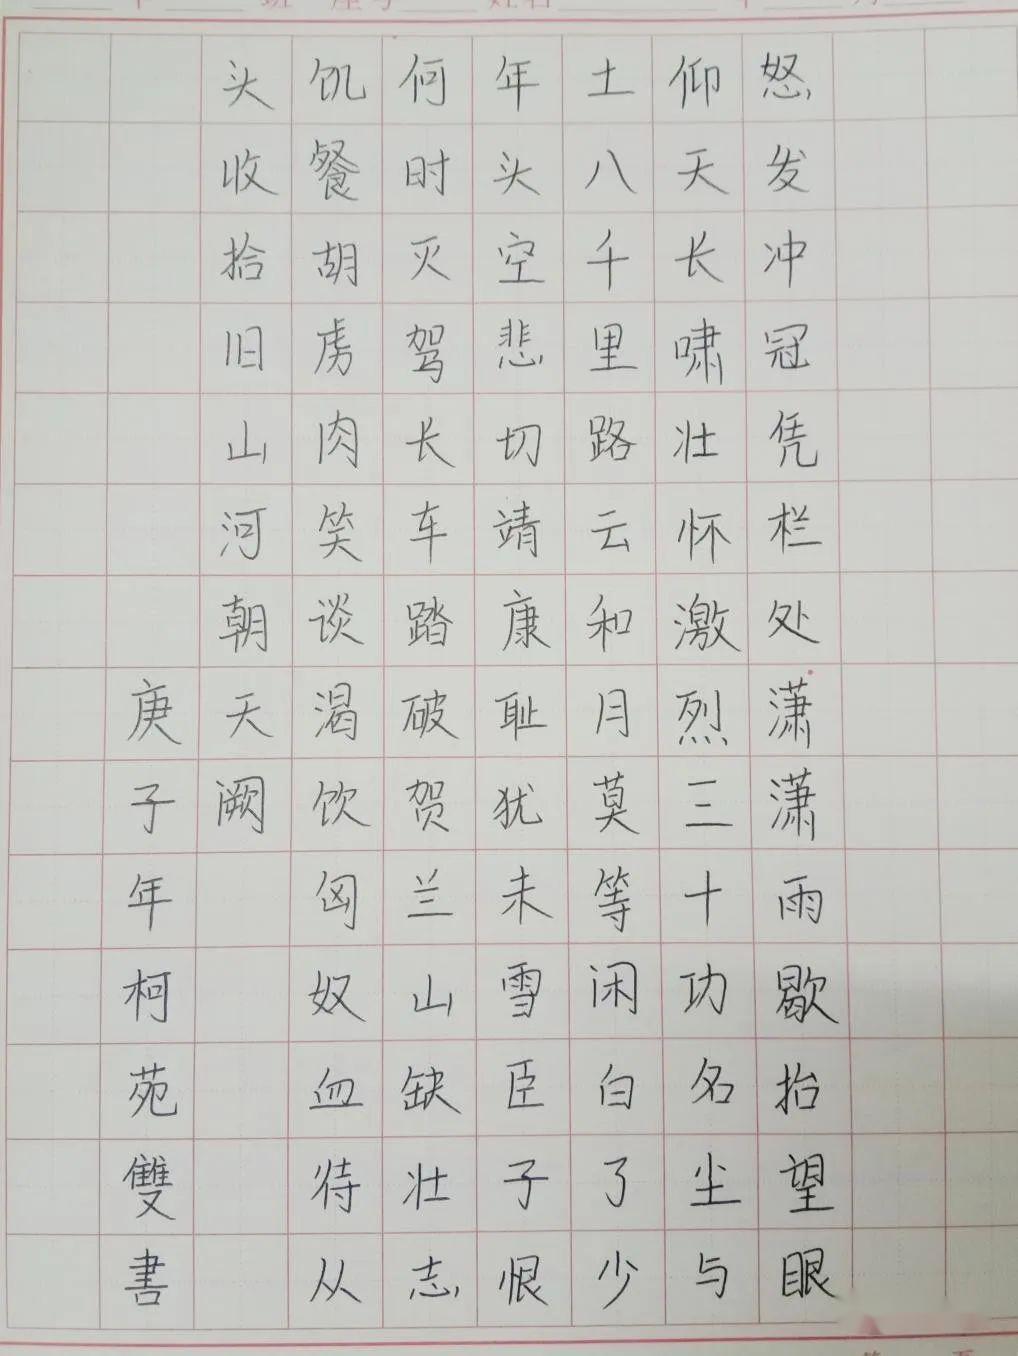 怒发冲冠凭栏处潇潇雨歇抬望眼
仰天长啸壮怀激烈三十功名尘与
土八千里路云和月莫等闲白了少
年头空悲切靖康耻犹未雪臣子恨
何时灭驾长车踏破贺兰山缺壮志
饥餐胡虏肉笑谈渴饮匈奴血待从
头收拾旧山河朝天阙
庚子年柯苑雙書